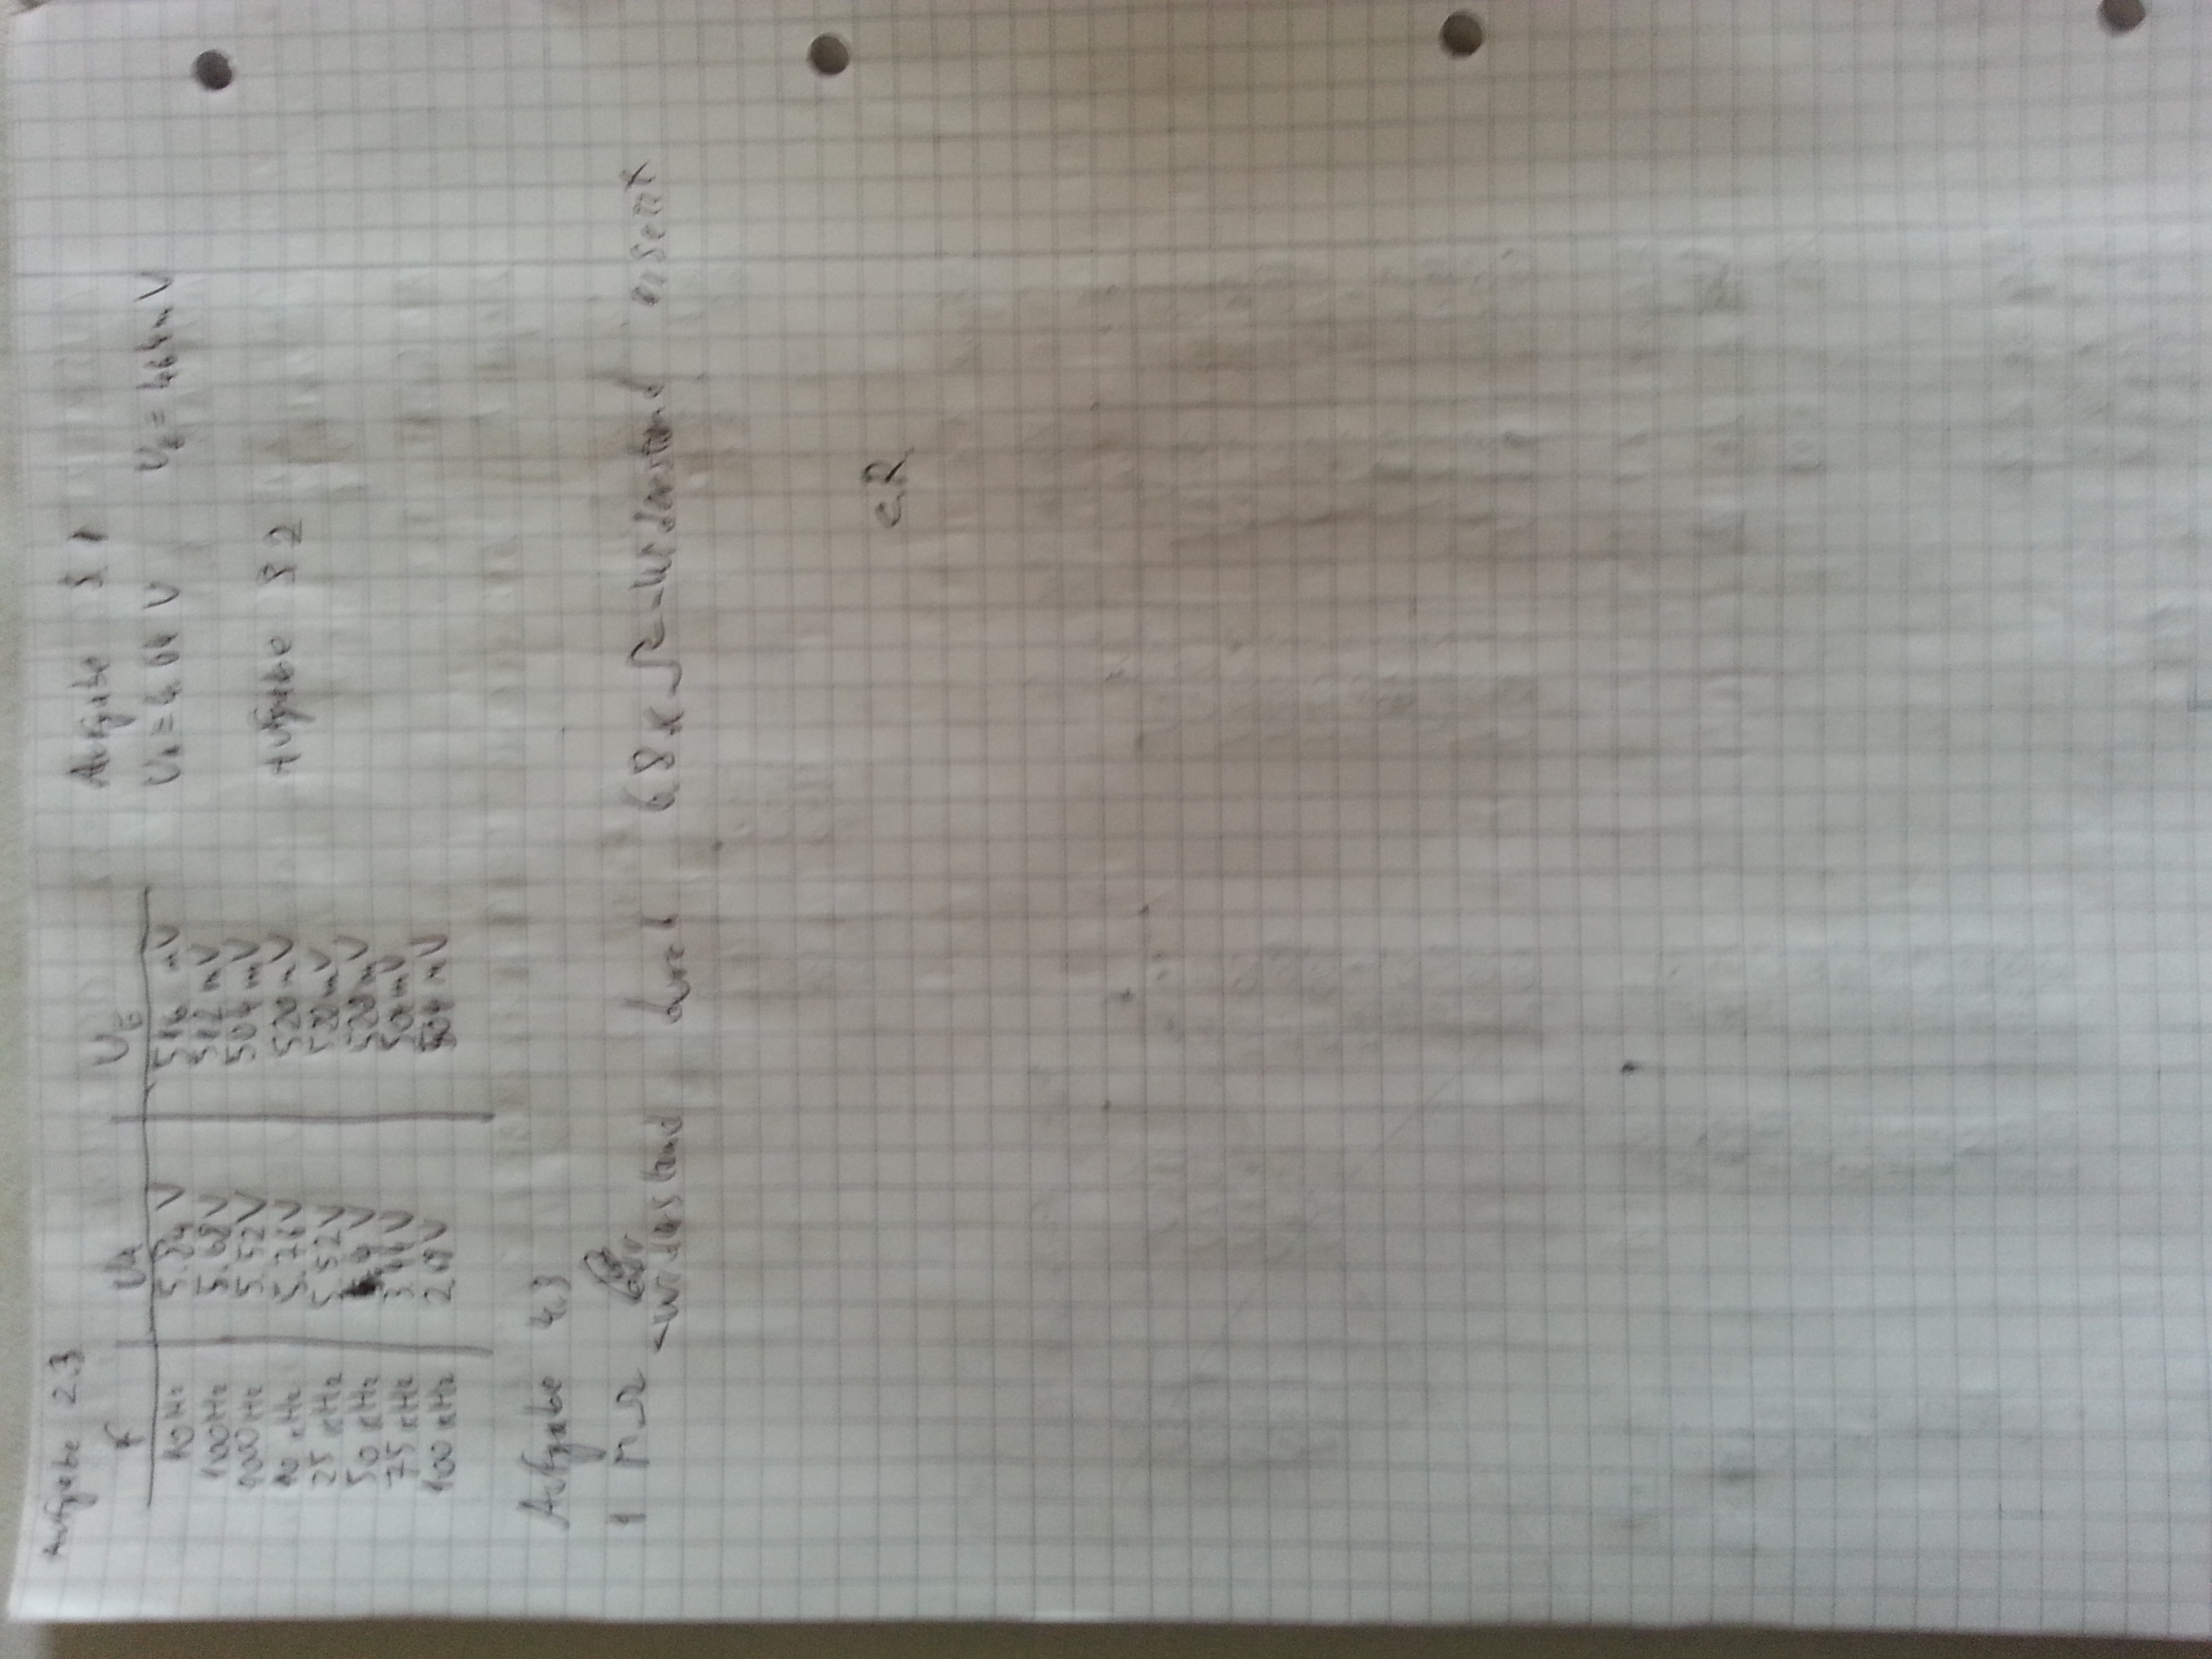 Aufgabe 2.3
f UA UE
10 Hz 5.84 V 516 mV
100 Hz 5.68 V 512 mV
1000 Hz 5.52 V 504 mV
10 kHz 5.76 V 520 mV
25 kHz 5.52 V 520 mV
50 kHz 520 mV
75 kHz 3.44 V mV
100 kHz 504 mV
Aufgabe 3.1
UA = 4.64 V UE = 464 mV
Aufgabe 3.2
Aufgabe 4.3
1 MΩ
-widerstand durch 68 k Ω-Widerstand ersetzt